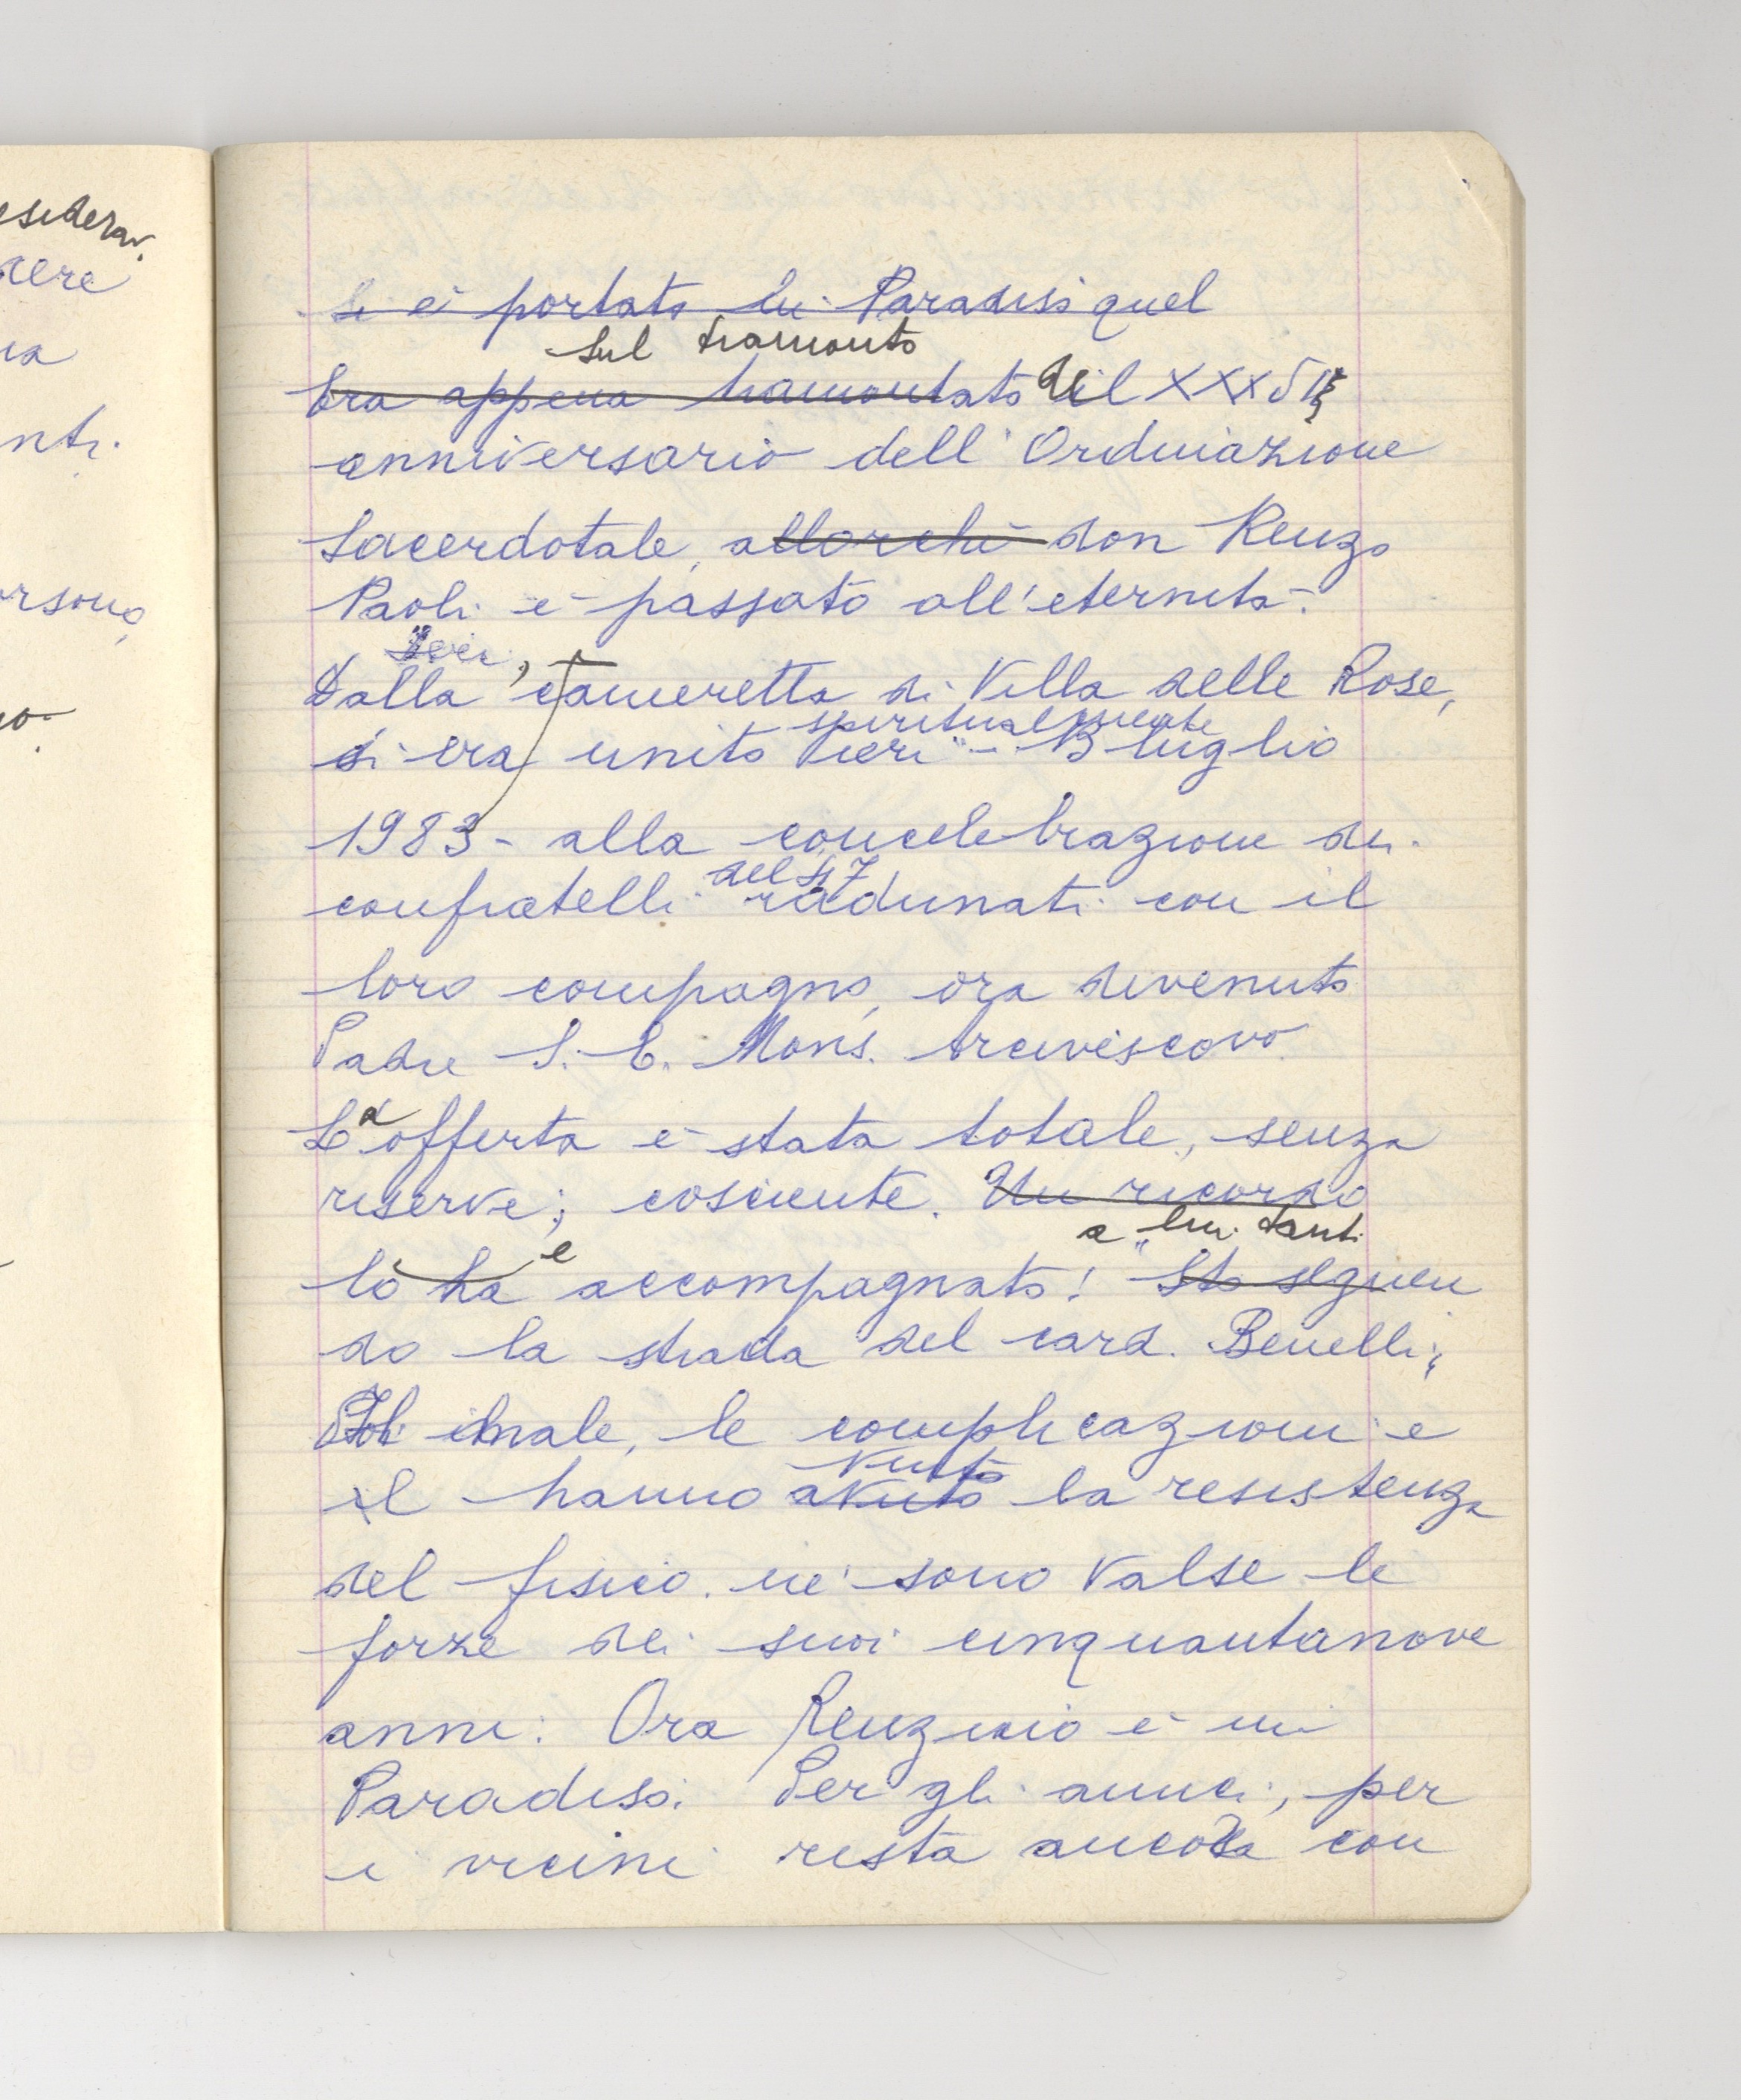 esiderav.
acere
nti.
rsona
si è portato in Paradiso quel
sul tramonto
Era appena tramontato del XXXVI
anniversario dell'Ordinazione
Sacerdotale, allorché don Renzo
Paoli è passato all'eternità.
Ieri,
Dalla cameretta di Villa delle Rose,
spiritualmente
si era unito ieri - 13 luglio
1983 - alla concelebrazione dei
del '47
confratelli radunati con il
loro compagno, ora divenuto
Padre S. E. Mons. Arcivescovo.
La offerta è stata totale, senza
riserve; cosciente. Un ricordo
a lui tanti
lo ha e accompagnato! Sta seguen
do la strada del card. Benelli;
Il male, le complicazioni e
vinto
il hanno avuto la resistenza
del fisico. né sono valse le
forze dei suoi cinquantanove
anni. Ora Renzino è in
Paradiso. Per gli amici, per
i vicini resta ancora con